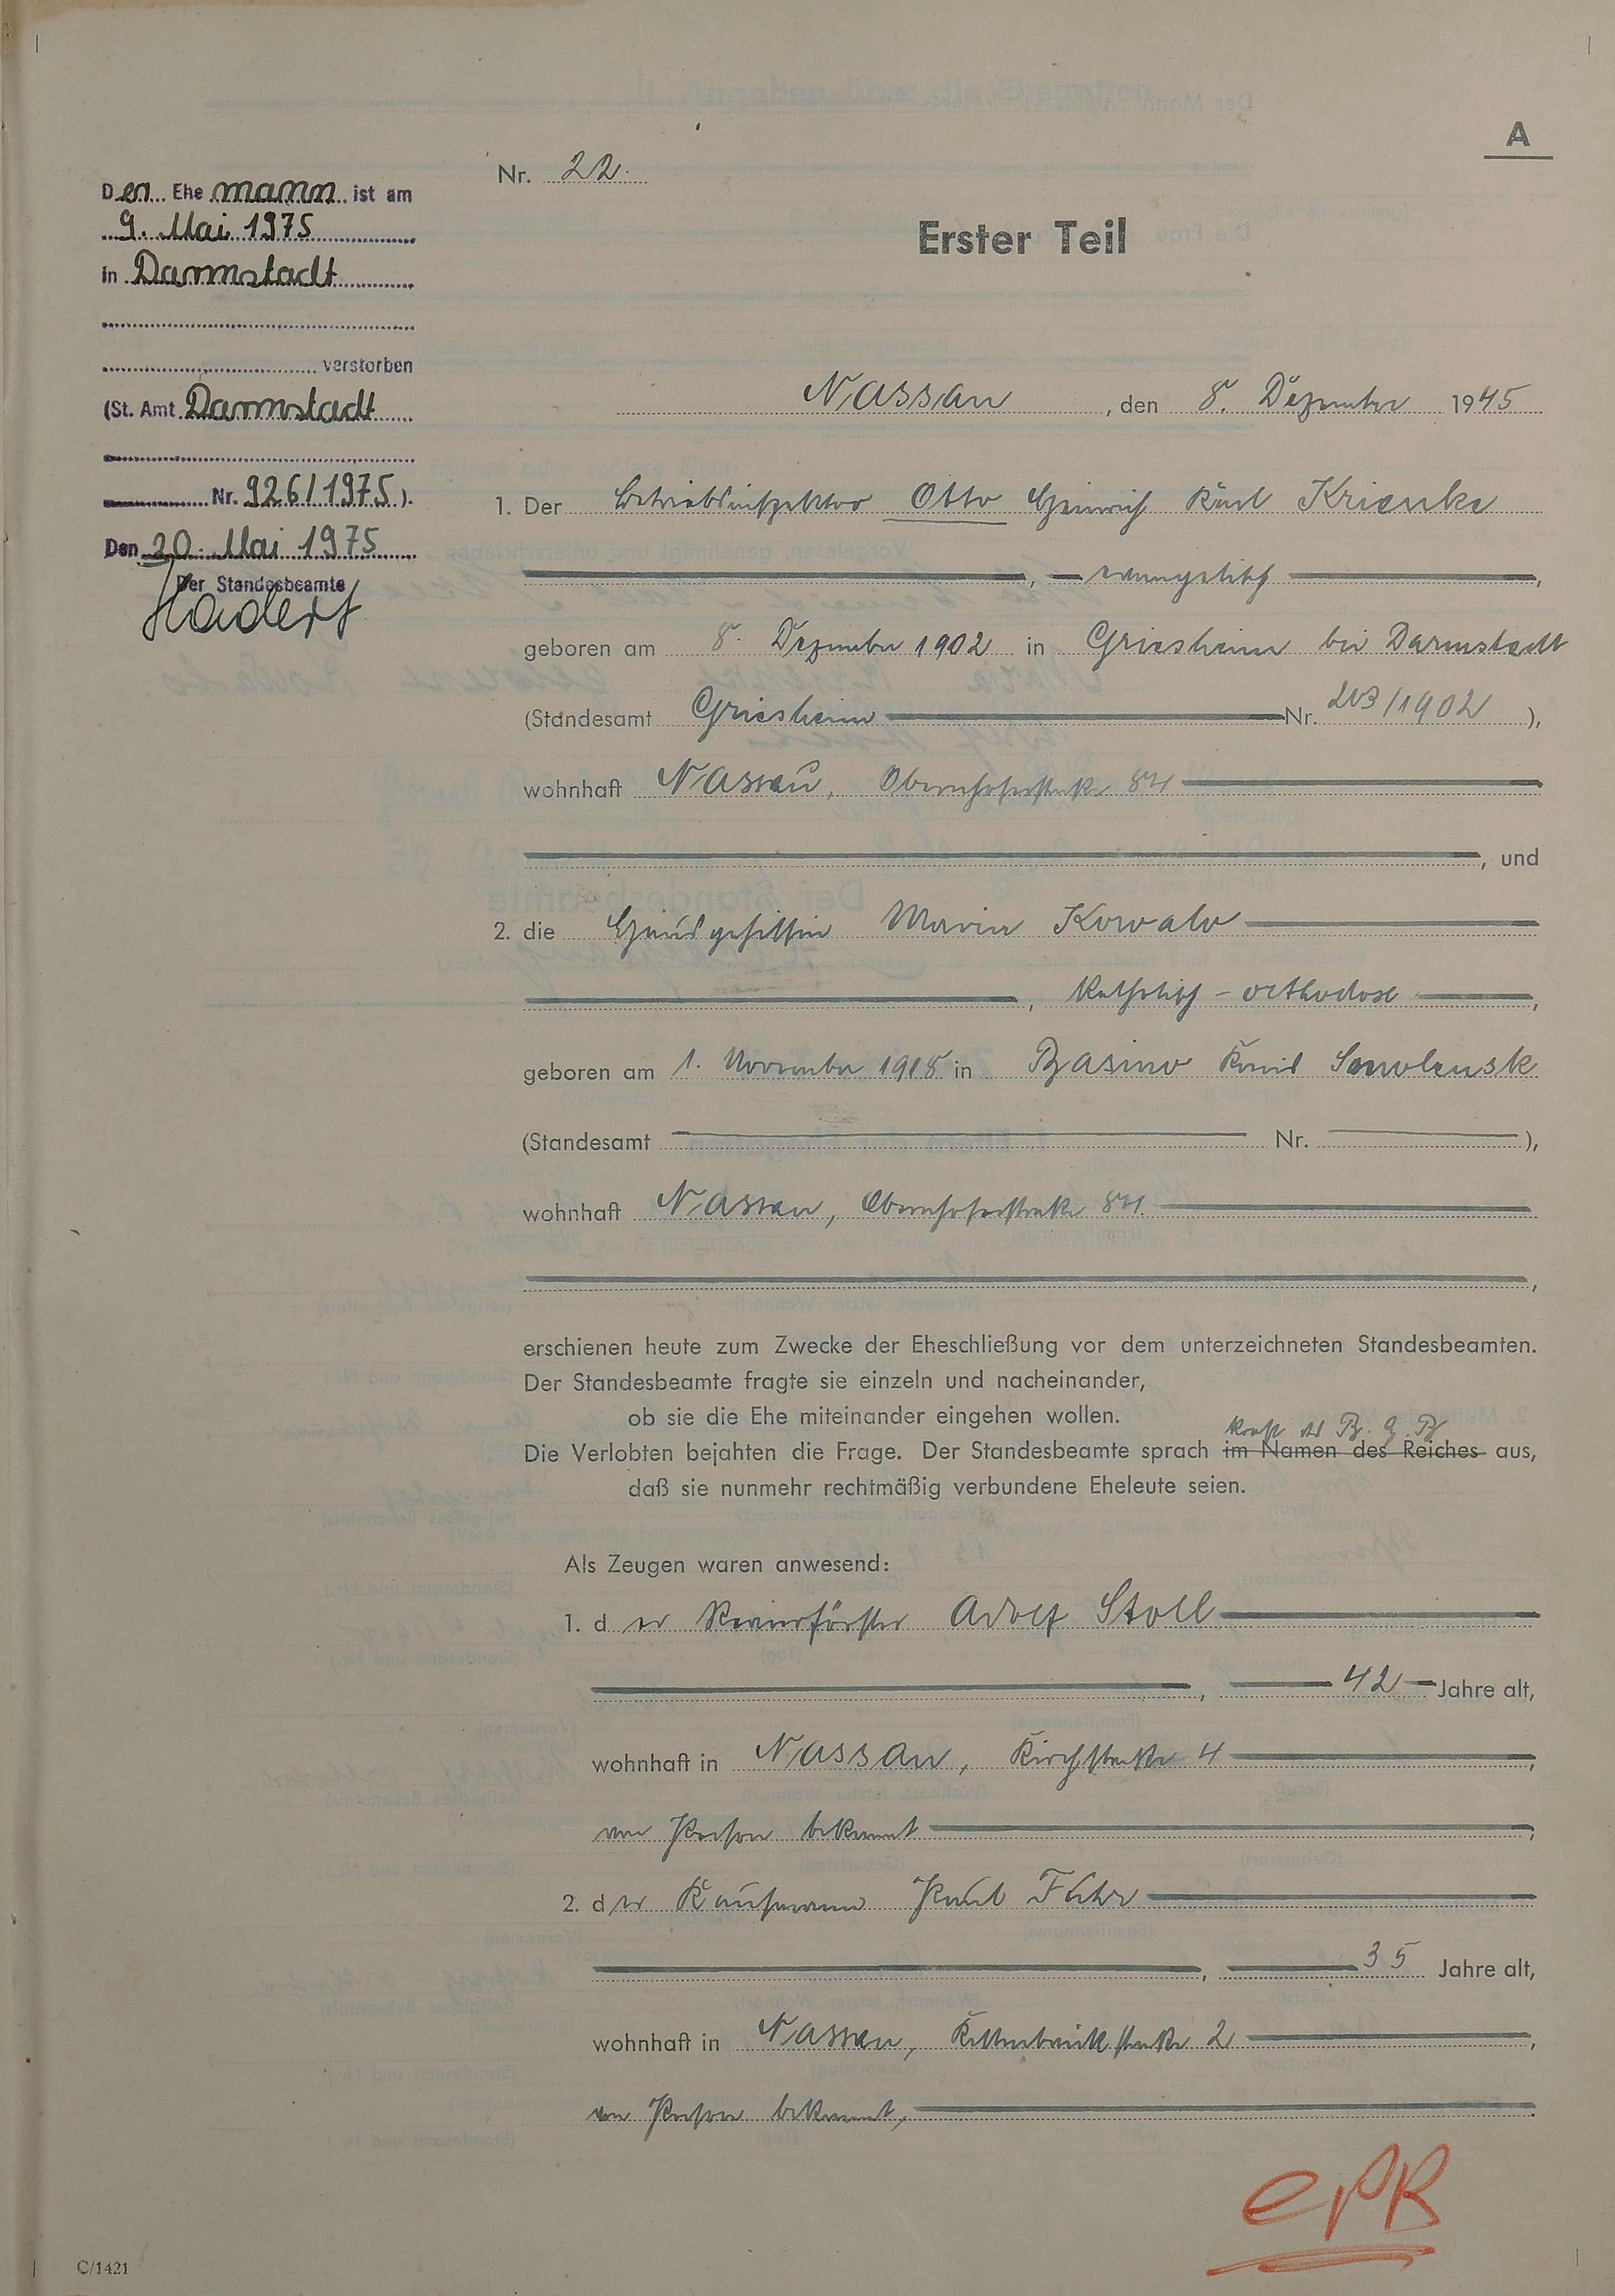 A
Nr. 22.
Erster Teil
Der Ehemann ist am
9. Mai 1975
in Darmstadt
verstorben
(St. Amt Darmstadt
Nr. 926/1975).
Den 20. Mai 1975
Der Standesbeamte
Hadert
Nassau, den 8. Dezember 1945
1. Der Betriebsinspektor Otto Heinrich Karl Krienke
, evangelisch,
geboren am 8. Dezember 1902 in Griesheim bei Darmstadt
(Standesamt Griesheim Nr. 203/1902),
wohnhaft Nassau, Obernhoferstraße
, und
2. die Hausgehilfin Maria Kowalo
, Katholisch-orthodox,
geboren am 1. November 1918 in Kreis Smolensk
(Standesamt Nr. ),
wohnhaft Nassau, Obernhoferstraße
,
erschienen heute zum Zwecke der Eheschließung vor dem unterzeichneten Standesbeamten.
Der Standesbeamte fragte sie einzeln und nacheinander,
ob sie die Ehe miteinander eingehen wollen.
kraft des B. G. B
Die Verlobten bejahten die Frage. Der Standesbeamte sprach im Namen des Reiches aus,
daß sie nunmehr rechtmäßig verbundene Eheleute seien.
Als Zeugen waren anwesend:
1. der Revierförster Adolf Stoll
, 42 Jahre alt,
wohnhaft in Nassau, Kirchstraße 4,
von Person bekannt,
2. der Kaufmann Paul Fuhr
, 35 Jahre alt,
wohnhaft in Nassau, Kettenbrückstraße 2,
von Person bekannt,
ePR
C/1421